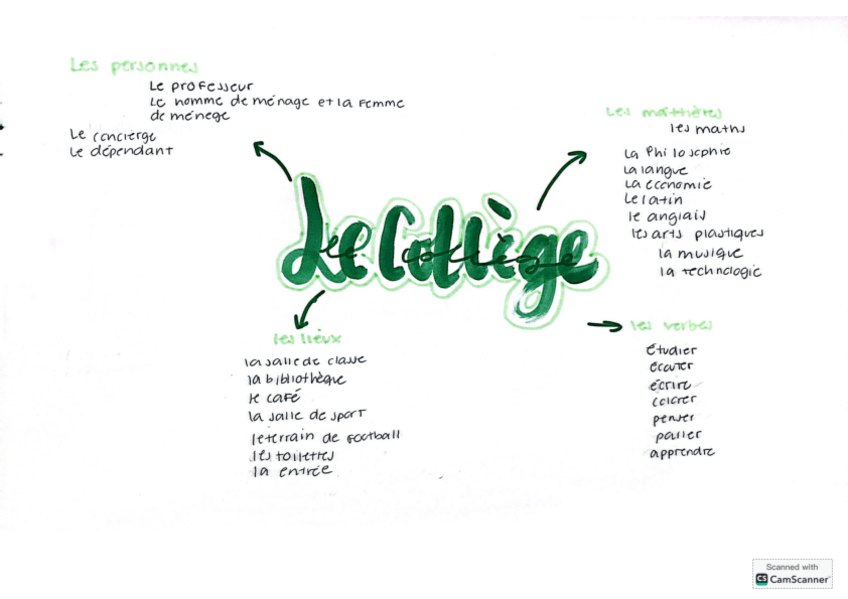 Les personnes
Le professeur
Le homme de ménage et la femme
de ménege
Le concierge
Le dépendant
Les matthères
les maths
la Philosophie
la langue
la économie
Le latin
le anglais
les arts plastiques
la musique
la technologie
Le Collège
le collège
les lieux
la salle de classe
la bibliothèque
le café
la salle de sport
le terrain de football
les toilettes
la entrée
les verbes
étudier
écouter
écrire
colorer
penser
parler
apprendre
Scanned with
CS CamScanner